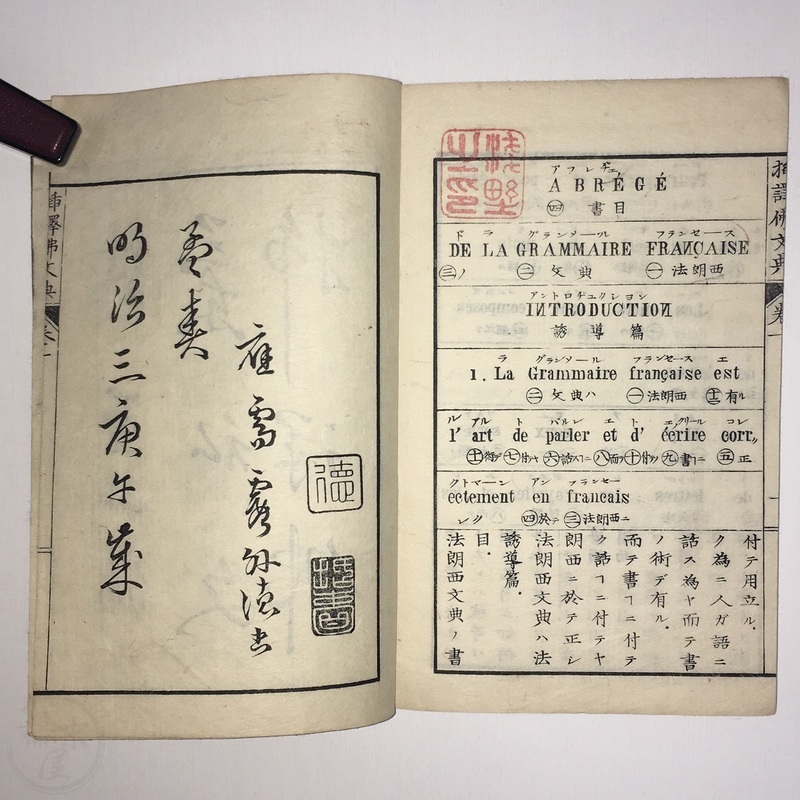 挿譯佛文典 巻一
明治三庚午歳
孟春
應需
徳
アブレヂェ
ABRÉGÉ
四 書目
ド ラ グランマール フランセース
DE LA GRAMMAIRE FRANÇAISE
三ノ 二 文典 一 法朗西
アントロヂュクション
INTRODUCTION
誘導篇
ラ グランマール フランセース エ
1. La Grammaire française est
二 文典ハ 一 法朗西 十二 有ル
ル アル ト パルレ エ ト エクリール コレ
l' art de parler et d' écrire corr„
五 正
クトマーン アン フランセー
ectement en francais
レク 四 於テ 三 法朗西ニ
付テ用立ル.
ク為ニ人ガ語ニ
話ス為ヤ而テ書
ノ術デ有ル.
而テ書フニ付テ
ク話フニ付テヤ
朗西ニ於テ正シ
法朗西文典ハ法
誘導篇.
目.
法朗西文典ノ書
挿譯佛文典 巻一